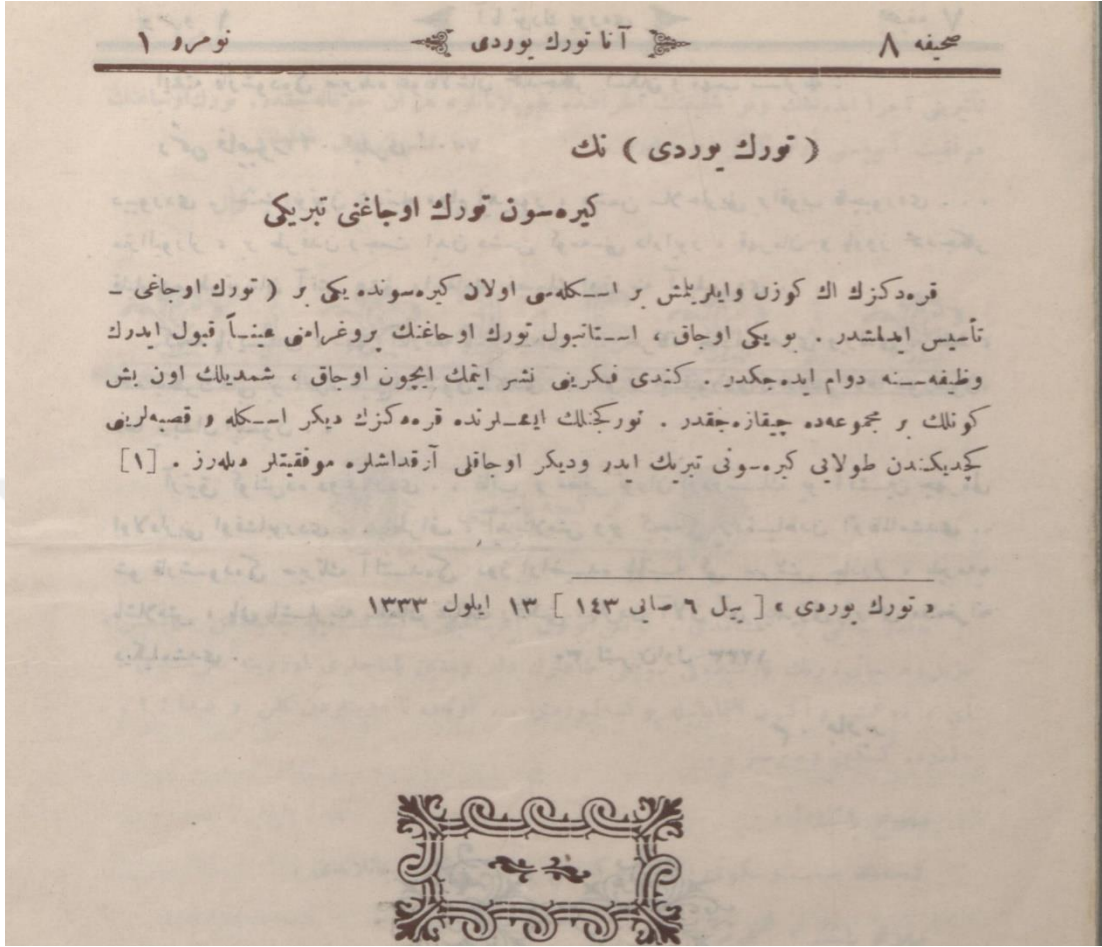 صحیفه ٨ آنا تورك یوردی نومرو ١
( تورك یوردی ) نك
كیره‌سون تورك اوجاغنی تبریکی
قره‌دکزك اك کوزل وایلریلمش بر اسکله‌سی اولان کیره‌سونده یکی بر ( تورك اوجاغی ـ
تأسیس ایدلمشدر . بو یکی اوجاق ، استانبول تورك اوجاغنك پروغرامنی عیناً قبول ایدرك
وظیفه‌سنه دوام ایده‌جکدر . کندی فکرینی نشر ایتمك ایچون اوجاق ، شمدیلك اون بش
کونلك بر مجموعه‌ده چیقاره‌جقدر . تورکجیلك ایشلرنده قره‌دکزك دیکر اسکله و قصبه‌لرینی
کچدیکندن طولایی کیره‌سونی تبریك ایدر ودیکر اوجاقلی آرقداشلره موفقیتلر دیله‌رز . [١]
« تورك یوردی » [ ییل ٦ صایی ١٤٣ ] ١٣ ایلول ١٣٣٣